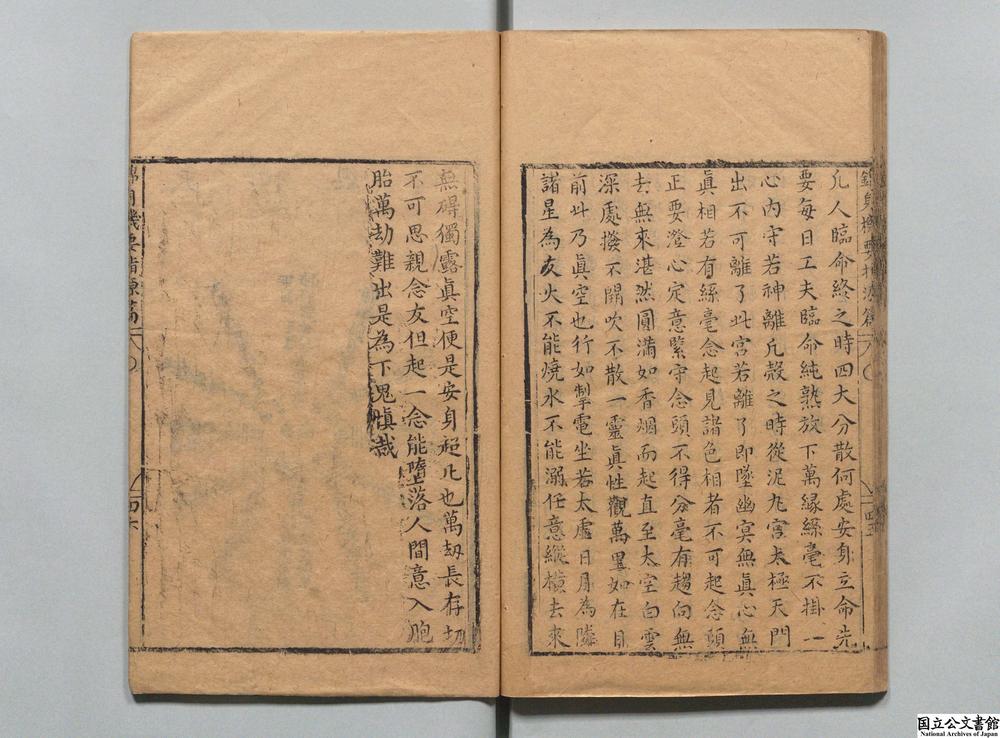 凢人臨命終之時四大分散何處安身立命先
要每日工夫臨命純熟放下萬縁絲毫不掛一
心内守若神離凢殻之時從泥九宫太極天門
出不可離了此宫若離了即墜幽冥無眞心無
眞相若有絲毫念起見諸色相者不可起念頭
正要澄心定意緊守念頭不得分毫有趨向無
去無來湛然圓滿如香烟而起直至太空白雲
深處撥不開吹不散一靈眞性觀萬里如在目
前此乃眞空也行如掣電坐若太虚日月為隣
諸星為友火不能燒水不能溺任意縱横去來
無碍獨露眞空便是安身超凢也萬刼長存切
不可思親念友但起一念能墮落人間意入胞
胎萬劫難出是為下鬼慎哉
國立公文書館
National Archives of Japan